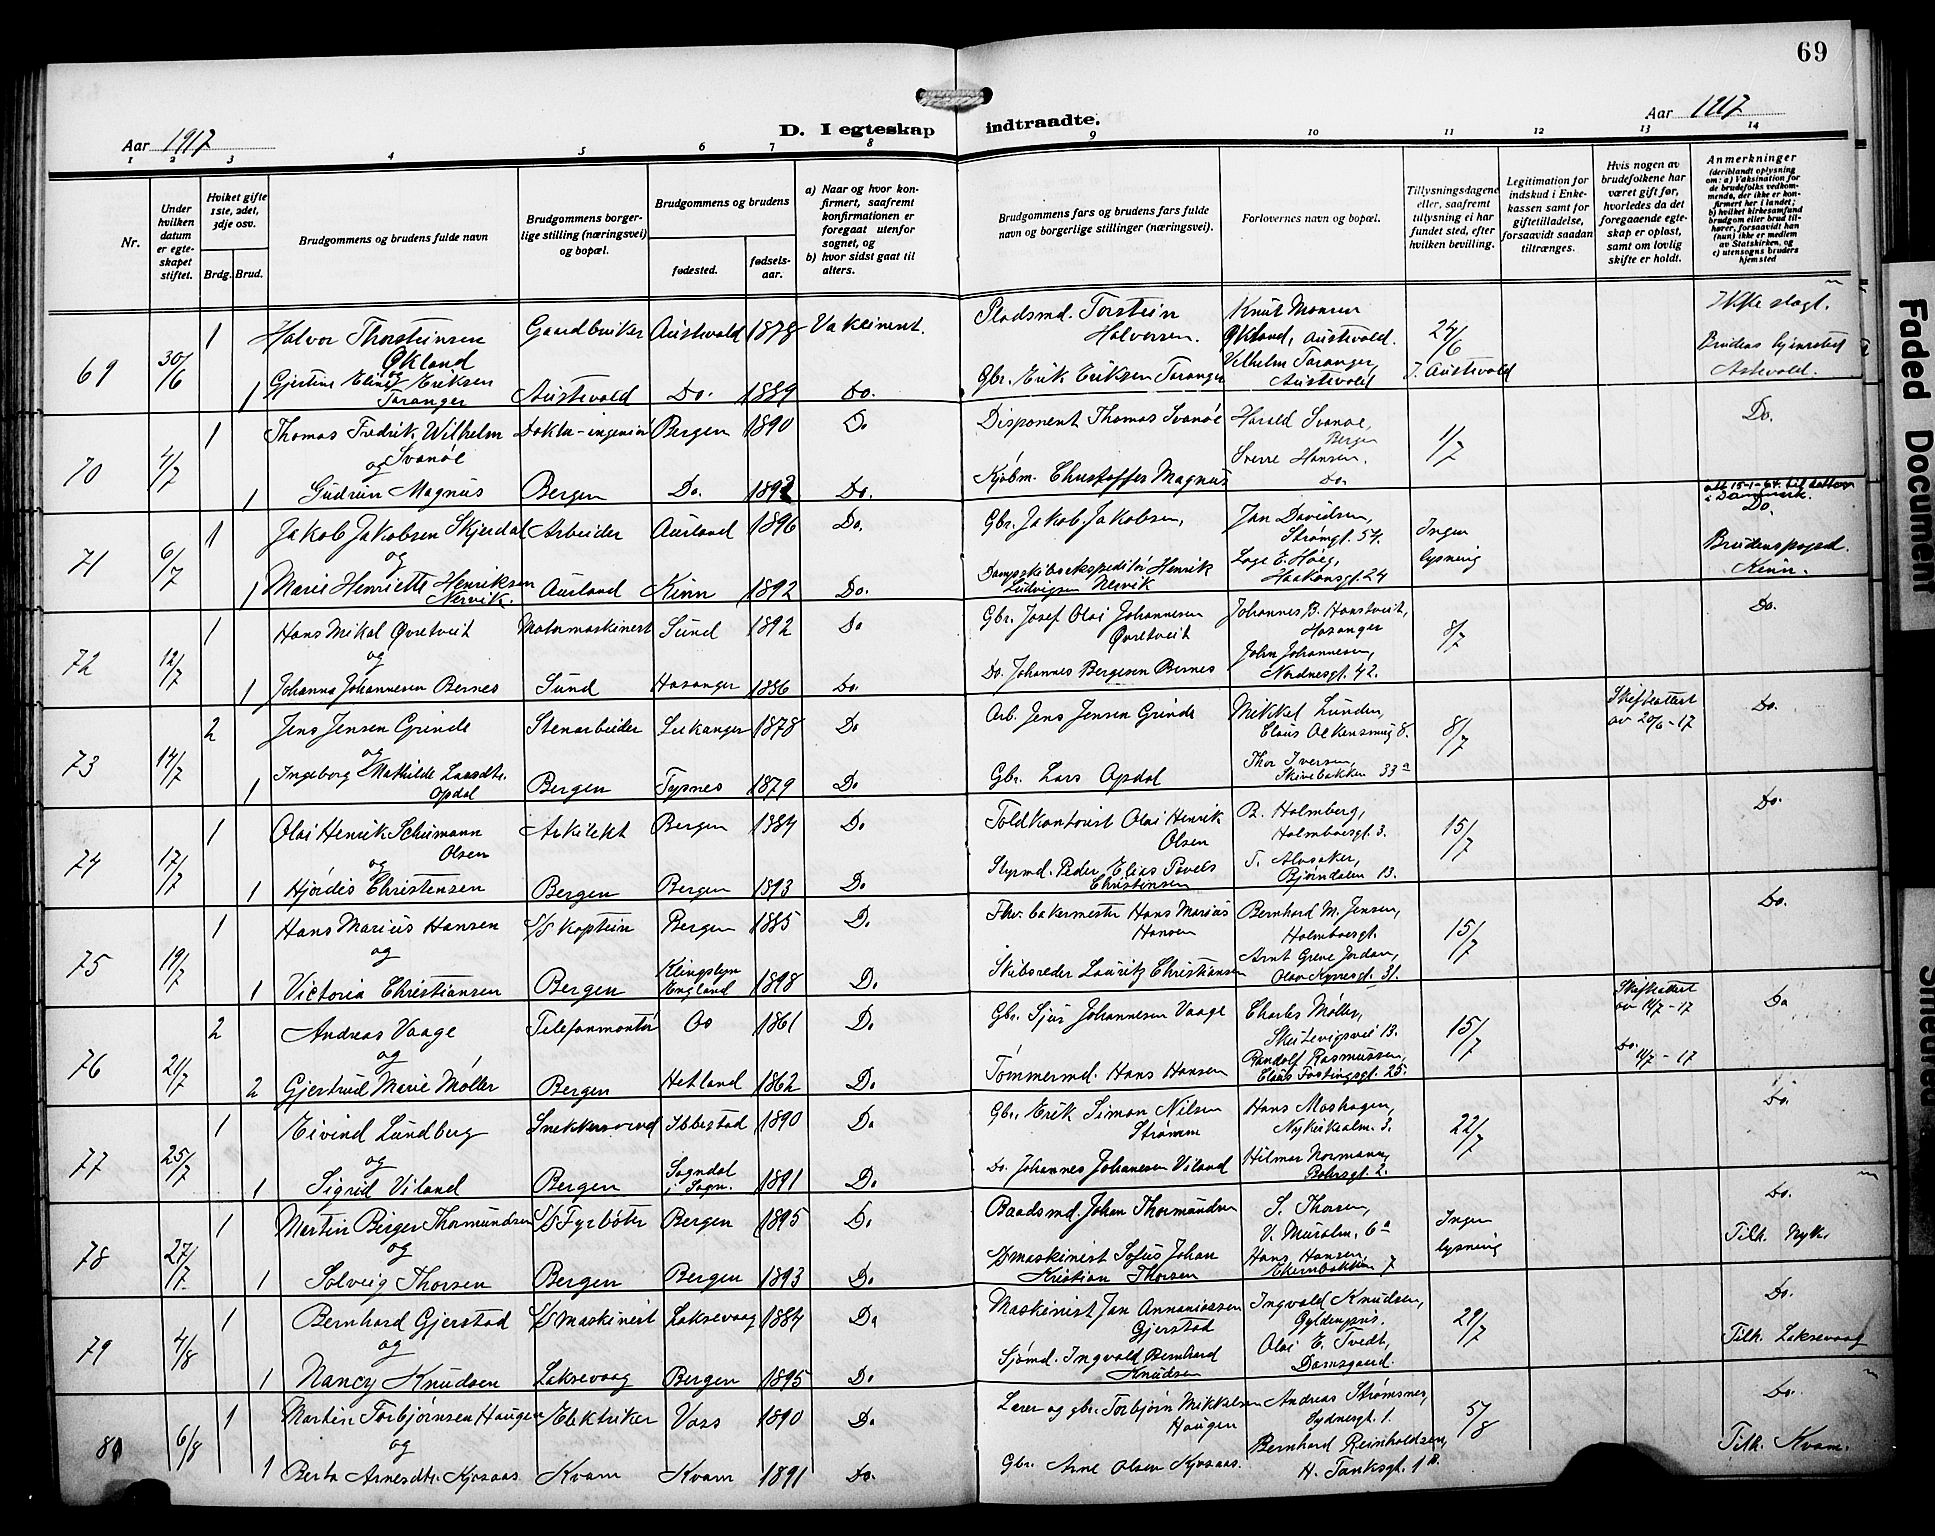 69
Aar 1917
D. I egteskap indtraadte.
Aar 1917
1 2 3 4 5 6 7 8 9 10 11 12 13 14
Nr.
Under hvilken datum er egteskapet stiftet.
Hvilket gifte 1ste, 2det, 3dje osv.
Brdg. Brud.
Brudgommens og brudens fulde navn
Brudgommens borgerlige stilling (næringsvei) og bopæl.
Brudgommens og brudens
fødested.
fødselsaar.
a) Naar og hvor konfirmert, saafremt konfirmationen er foregaat utenfor sognet, og
b) hvor sidst gaat til alters.
Brudgommens fars og brudens fars fulde navn og borgerlige stillinger (næringsvei).
Forlovernes navn og bopæl.
Tillysningsdagene eller, saafremt tillysning ei har fundet sted, efter hvilken bevilling.
Legitimation for indskud i Enkekassen samt for giftetilladelse, forsaavidt saadan tiltrænges.
Hvis nogen av brudefolkene har været gift før, hvorledes da det foregaaende egteskap er opløst, samt om lovlig skifte er holdt.
Anmerkninger
(deriblandt oplysning om: a) Vaksination for de brudefolks vedkommende, der ikke er konfirmert her i landet; b) hvilket kirkesamfund brudgom eller brud tilhører, forsaavidt han (hun) ikke er medlem av Statskirken, og c) utensogns bruders hjemsted
69 30/6 1 Halvor Thorsteinsen Økland Gaardbruker Austevold 1878 Va Pladsmd. Torstein Halvorsen. Knut Monsen Økland, Austevold. 24/6 Ikke slegt.
og
1 Gjertine Eline Eriksen Taranger Austevold Do. 1889 Do. Gbr. Erik Eriksen Taranger Vilhelm Taranger, Austevold I. Austevold Brudens hjemsted
70 4/7 1 Thomas Fredrik Wilhelm Svanøe Bergen 1890 Do Disponent Thomas Svanøe Harald Svanøe, Bergen 1/7 Do.
og
1 Gudrun Magnus Bergen Do. 1892 Do. Kjøbm. Christoffer Magnus Sverre Hansen. Do.
att 15-1-64 til
i Danmark.
71 6/7 1 Jakob Jakobsen Skjerdal Arbeider Aurland 1896 Do. Gbr. Jakob Jakobsen, Jan Davidsen, Strømgt. 54. Ingen lysning Do.
og
1 Marie Henriette Henriksen Nervik. Aurland Kinn 1892 Do. Dampskibsekspeditør Henrik Ludvigsen Nervik Lage E. Høeg, Haakonsgt. 24 Kinn.
72 12/7 1 Hans Mikal Øvretveit Motormaskinert Sund 1892 Do Gbr. Josef Olai Johannesen Øvretveit Johannes B. Hanstveit, Hosanger 8/7 Do.
og
1 Johanna Johannesen Bernes Sund Hosanger 1886 Do. Do. Johannes Bergesen Bernes John Johannesen, Nordnesgt. 42.
73 14/7 2 Jens Jensen Grinde Stenarbeider Leikanger 1878 Do Arb. Jens Jensen Grinde Mikkel Lunden, 8/7 Skifteattest av 20/6-17 Do.
og
1 Ingeborg Mathilde Larsdtr. Opdal Bergen Tysnes 1879 Do Gbr. Lars Opdal Thor Iversen, Skivebakken 33a
74 17/7 1 Olai Henrik Schumann Olsen Arkitekt Bergen 1884 Do Toldkontorist Olai Henrik Olsen B. Holmberg, Holmboesgt. 3. 15/7 Do.
og
1 Hjørdis Christensen Bergen Bergen 1893 Do Styrmd. Peder Elias Povels Christensen T. Alvsaker, Bjørndalen 13.
75 19/7 1 Hans Marius Hansen S/S Kaptein Bergen 1885 Do Fhv. bakermester Hans Marius Hansen Bernhard M. Jensen, Holmboesgt. 15/7 Do.
og
1 Victoria Christiansen Bergen England 1898 Do. Skibsreder Lauritz Christiansen Arnt Greve Jordan, Olav Kyrresgt. 31.
76 21/7 2 Andreas Vaage Telefonmontør Os 1861 Do. Gbr. Sjur Johannesen Vaage Charles Møller, Skutevigsvei 13. 15/7 Skifteattest av 14/7-17 Do
og
2 Gjertrud Marie Møller Bergen Hetland 1862 Do Tømmermd. Hans Hansen Randolf Rasmussen, Claus Frostingsgt. 25. Do. 11/7-17
77 25/7 1 Eivind Lundberg Snekkersvend Ibbestad 1890 Do Gbr. Erik Simon Nilsen Strømm Hans Moshagen, Nykirkealm. 3. 22/7 Do.
og
1 Sigrid Viland Bergen Sogndal i Sogn. 1891 Do Do. Johannes Johanesen Viland Hilmar Normann,
78 27/7 1 Martin Birger Thormundsen S/S Fyrbøter Bergen 1895 Do Baadsmd. Johan Thormundsen S. Thorsen, V. Muralm. 6a Ingen lysning Do.
og
1 Solveig Thorsen Bergen Bergen 1893 Do S/S maskinist Sofus Johan Kristian Thorsen Hans Hansen, Ekrenbakken 7 Tilh. Nyk.
79 4/8 1 Bernhard Gjerstad S/S Maskinist Laksevaag 1884 Do Maskinist Jan Annaniassen Gjerstad Ingvald Knudsen, Gyldenpris. 29/7 Do.
og
1 Nancy Knudsen Laksevaag Bergen 1895 Do Sjømd. Ingvald Bernhard Knudsen Olai E. Tvedt, Damsgaard. Tilh. Laksevaag
80 6/8 1 Martin Torbjørnsen Haugen Elektriker Voss 1890 Do Lærer og gbr. Torbjørn Mikkelsen Haugen Andreas Strømsnes, Sydnesgt. 1. 5/8 Do.
og
1 Berta Arnesdtr. Kjosaas Kvam Kvam 1891 Do. Gbr. Arne Olsen Kjosaas. Bernhard Reinholdsen, H. Tanksgt. 1 B. Tilh. Kvam.
Faded Document